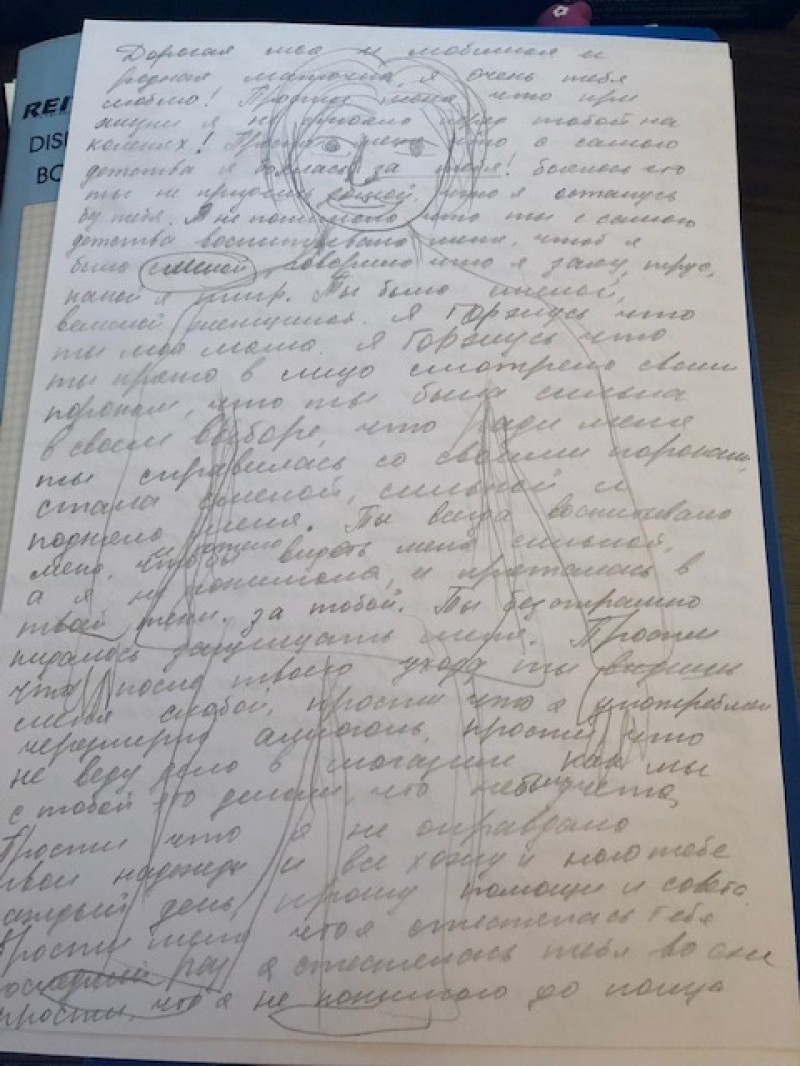 REI
DIS
BO
Дорогая моя и любимая и
родная мамочка, я очень тебя
люблю! Прости меня что при
жизни я не стояла перед тобой на
коленях! Прости меня что с самого
детства я боялась за тебя! боялась что
ты не придёшь домой, что я останусь
без тебя. Я не понимала что ты с самого
детства воспитывала меня, чтоб я
была смелой говорила что я трус,
Ты была смелой,
великой женщиной. Я горжусь что
ты моя мама. Я горжусь что
ты прямо в лицо смотрела своим
порокам, что ты была сильна
в своем выборе, что ради меня
ты справилась со своими пороками,
стала смелой, сильной и
подняла меня. Ты всегда воспитывала
меня, чтобы видеть меня сильной,
а я не понимала, и пряталась в
твоей тени. за тобой. Ты безстрашно
кидалась защищать меня. Прости
что после твоего ухода ты видишь
меня слабой, прости что я употребляю
черезмерно алкоголь, прости что
не веду дело в магазине как мы
с тобой это делали, что нет учёта,
Прости что я не оправдала
твои надежды и все хожу и ною тебе
каждый день, прошу помощи и совета
Прости меня что я стеснялась тебя
последний раз я стеснялась тебя во сне
прости, что я не понимаю до конца